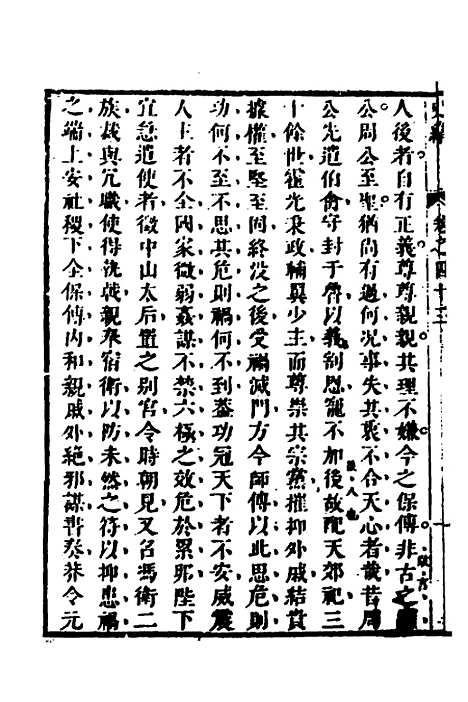 史纂 卷之四十三
人後者自有正義尊尊親親其理不嫌今之保傅非古之
公周公至聖猶尚有過何况事失其衷不合天心者哉昔周
公先遣伯禽守封于魯以義割恩寵不加後故配天郊祀三
十餘世霍光秉政輔翼少主而尊崇其宗黨摧抑外戚結貫
據權至堅至固終没之後受禍滅門方今師傅以此思危則
功何不至不思其危則禍何不到葢功冠天下者不安威震
人主者不全國家微弱姦謀不禁六極之效危於累卵陛下
宜急遣使者徵中山太后置之别宫令時朝見又召馮衛二
族裁與冗職使得執戟親奉宿衛以防未然之符以抑患禍
之端上安社稷下全保傅内和親戚外絶邪謀書奏莽令元